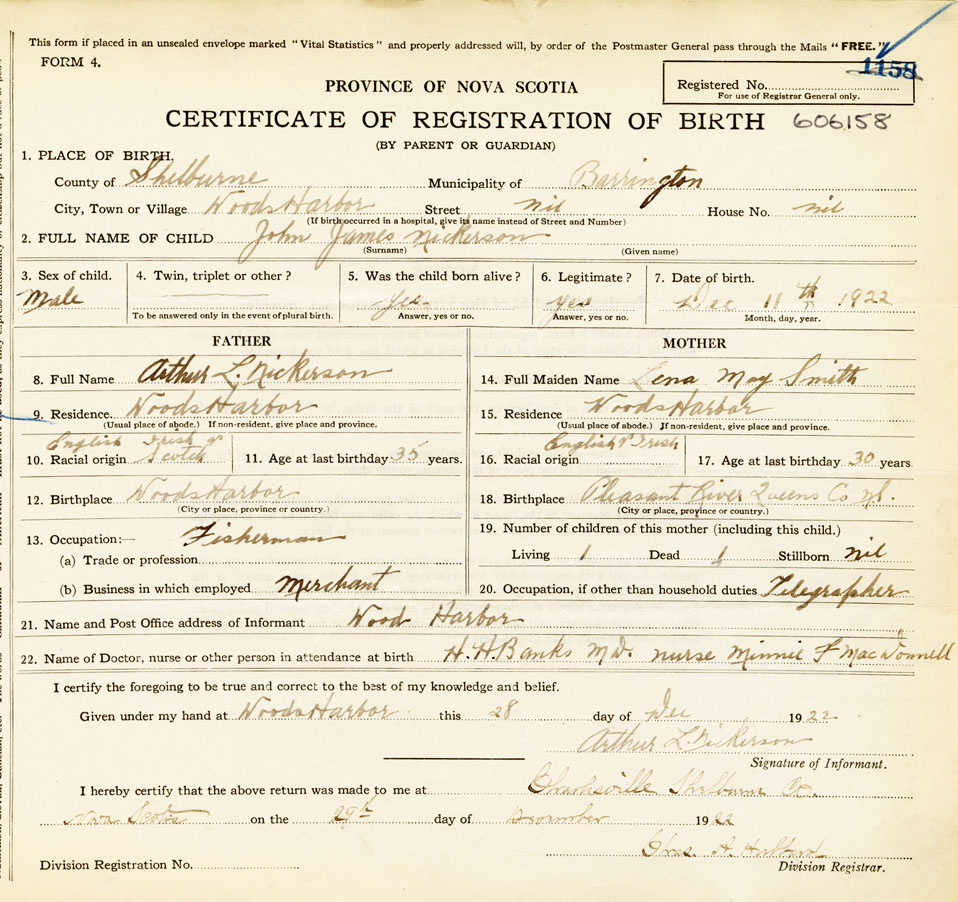 This form if placed in an unsealed envelope marked "Vital Statistics" and properly addressed will, by order of the Postmaster General pass through the Mails "FREE."
FORM 4.
1158
PROVINCE OF NOVA SCOTIA
Registered No.
For use of Registrar General only.
CERTIFICATE OF REGISTRATION OF BIRTH 606158
(BY PARENT OR GUARDIAN)
1. PLACE OF BIRTH.
County of Shelburne Municipality of Barrington
City, Town or Village Woods Harbor Street nil House No. nil
(If birth occurred in a hospital, give its name instead of Street and Number)
2. FULL NAME OF CHILD John James Nickerson
(Surname) (Given name)
3. Sex of child. 4. Twin, triplet or other? 5. Was the child born alive? 6. Legitimate? 7. Date of birth.
Male Yes yes Dec 11th 1922
To be answered only in the event of plural birth. Answer, yes or no. Answer, yes or no. Month, day, year.
FATHER MOTHER
8. Full Name Arthur L. Nickerson 14. Full Maiden Name Lena May Smith
9. Residence. Woods Harbor 15. Residence Woods Harbor
(Usual place of abode.) If non-resident, give place and province. (Usual place of abode.) If non-resident, give place and province.
English Irish & English & Irish
10. Racial origin Scotch 11. Age at last birthday 35 years. 16. Racial origin 17. Age at last birthday 30 years.
12. Birthplace Woods Harbor 18. Birthplace Pleasant River Queens Co N.S.
(City or place, province or country.) (City or place, province or country.)
13. Occupation:— Fisherman 19. Number of children of this mother (including this child.)
(a) Trade or profession Living 1 Dead 1 Stillborn nil
(b) Business in which employed Merchant 20. Occupation, if other than household duties Telegrapher
21. Name and Post Office address of Informant Wood Harbor
22. Name of Doctor, nurse or other person in attendance at birth H. H. Banks M.D. nurse Minnie F MacDonnell
I certify the foregoing to be true and correct to the best of my knowledge and belief.
Given under my hand at Woods Harbor this 28 day of Dec 1922
Arthur L. Nickerson
Signature of Informant.
I hereby certify that the above return was made to me at Shelburne Co.
Nova Scotia on the 29th day of December 1922
Division Registration No. Division Registrar.